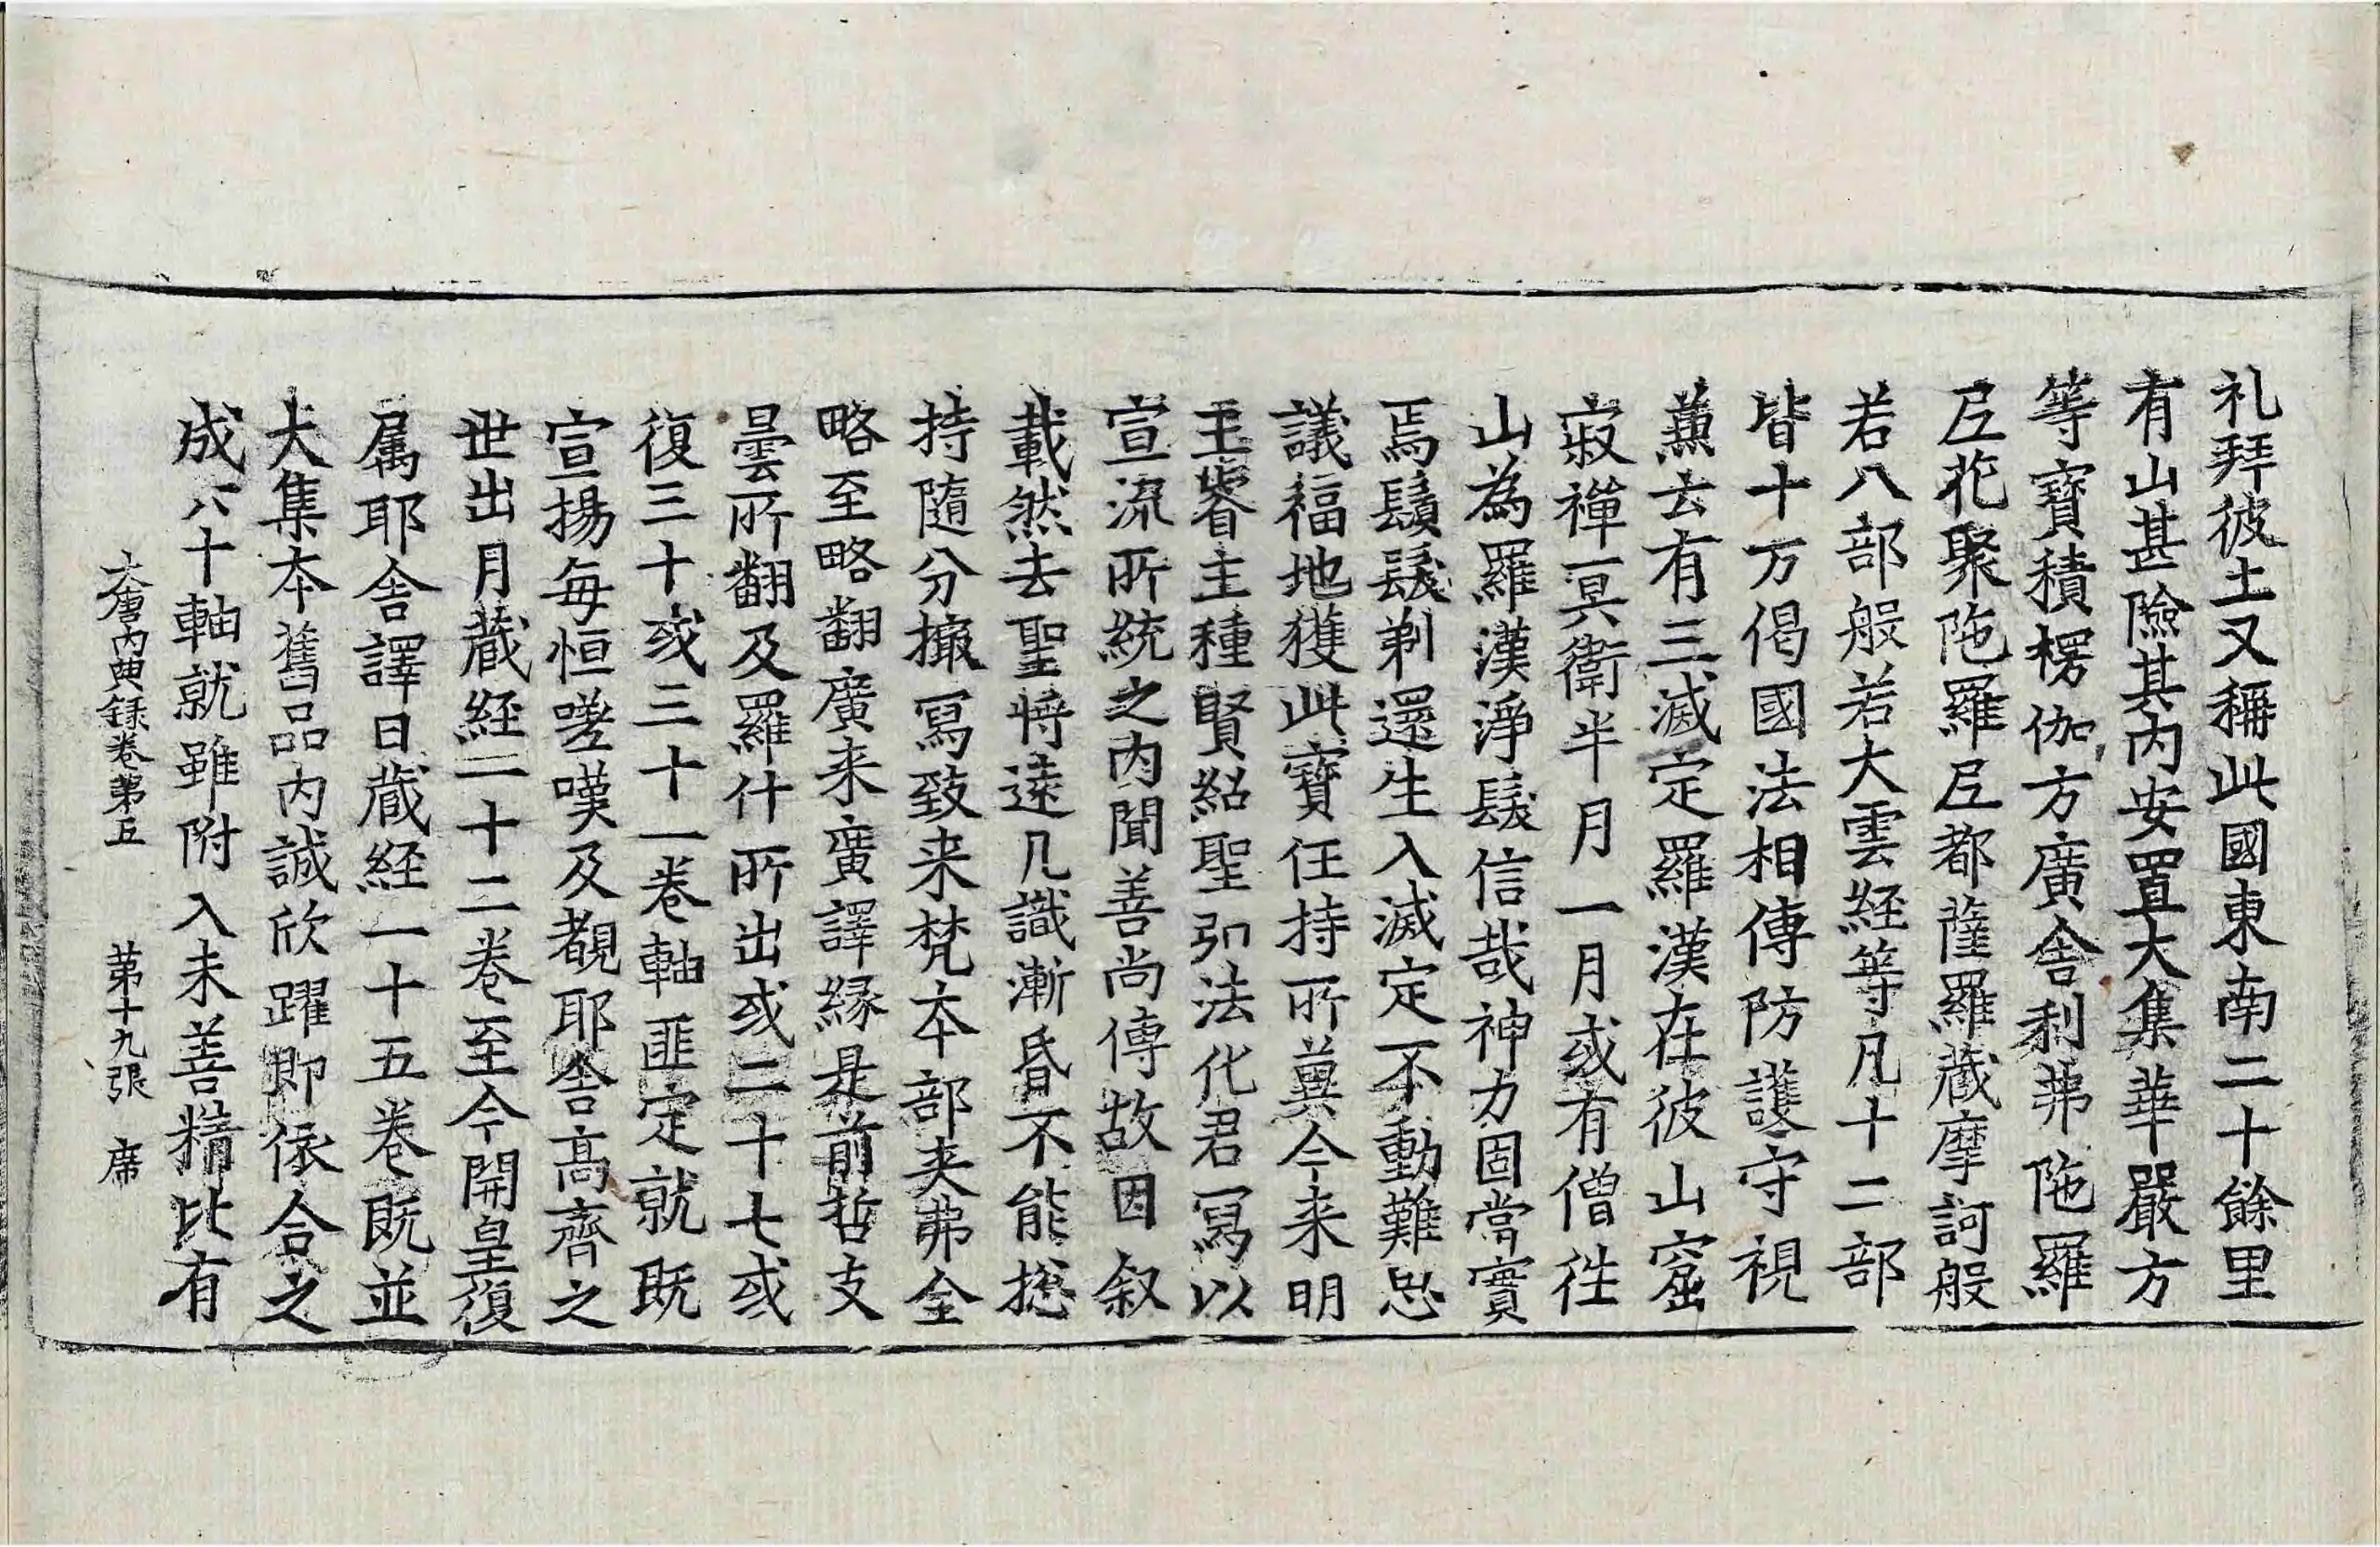 礼拜彼土又稱此國東南二十餘里
有山甚險其內安置大集華嚴方
等寶積楞伽方廣舍利弗陁羅
尼花聚陁羅尼都薩羅藏摩訶般
若八部般若大雲経等凡十二部
皆十万偈國法相傳防護守視
蕙去有三滅定羅漢在彼山窟
寂禪冥衛半月一月或有僧徃
山為羅漢淨髮信哉神力固當實
焉鬚髮剃還生入滅定不動難思
議福地獲此寶任持所冀今来明
主睿主種賢紹聖弘法化君冩以
宣流所統之內聞善尚傳故因叙
載然去聖將遠凡識漸昏不能揔
持隨分撮冩致来梵夲部夹弗全
略至略翻廣来廣譯縁是前哲支
曇所翻及羅什所出或二十七或
復三十或三十一卷軸匪定就既
宣揚每恒嗟嘆及覩耶舍髙齊之
世出月藏経一十二卷至今開皇復
属耶舍譯日藏経一十五卷既並
大集夲舊品內誠欣躍即依合之
成六十軸就雖附入未善精比有
大唐內典録卷第五 第十九張 席